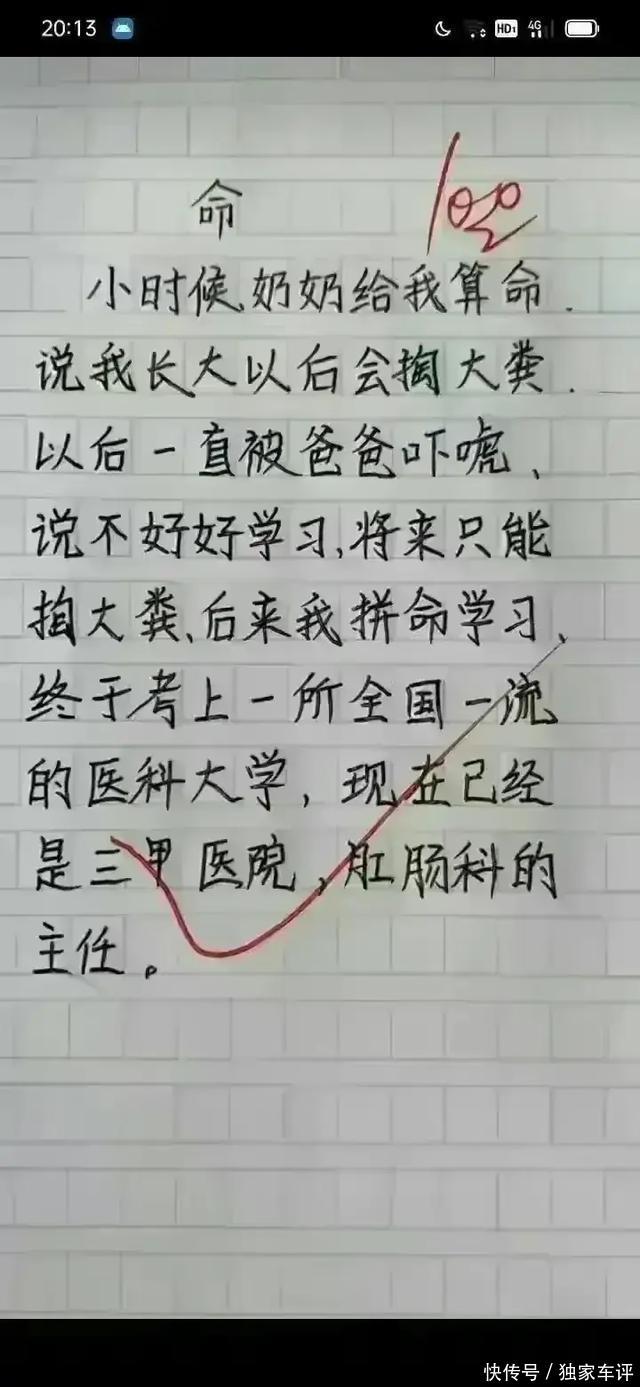 20:13
HD1 4G
命
100
小时候,奶奶给我算命.
说我长大以后会掏大粪.
以后一直被爸爸吓唬、
说不好好学习,将来只能
掏大粪、后来我拼命学习、
终于考上一所全国一流
的医科大学，现在已经
是三甲医院，肛肠科的
主任。
快传号 / 独家车评